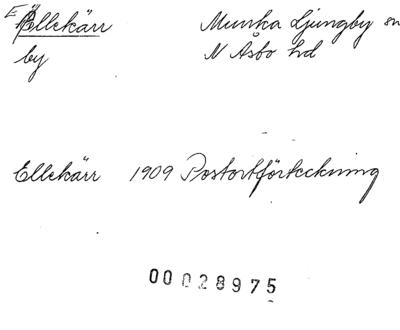 Ellekärr Munka Ljungby sn
by N Åsbo hd
Ellekärr 1909 Postortförteckning
00028975